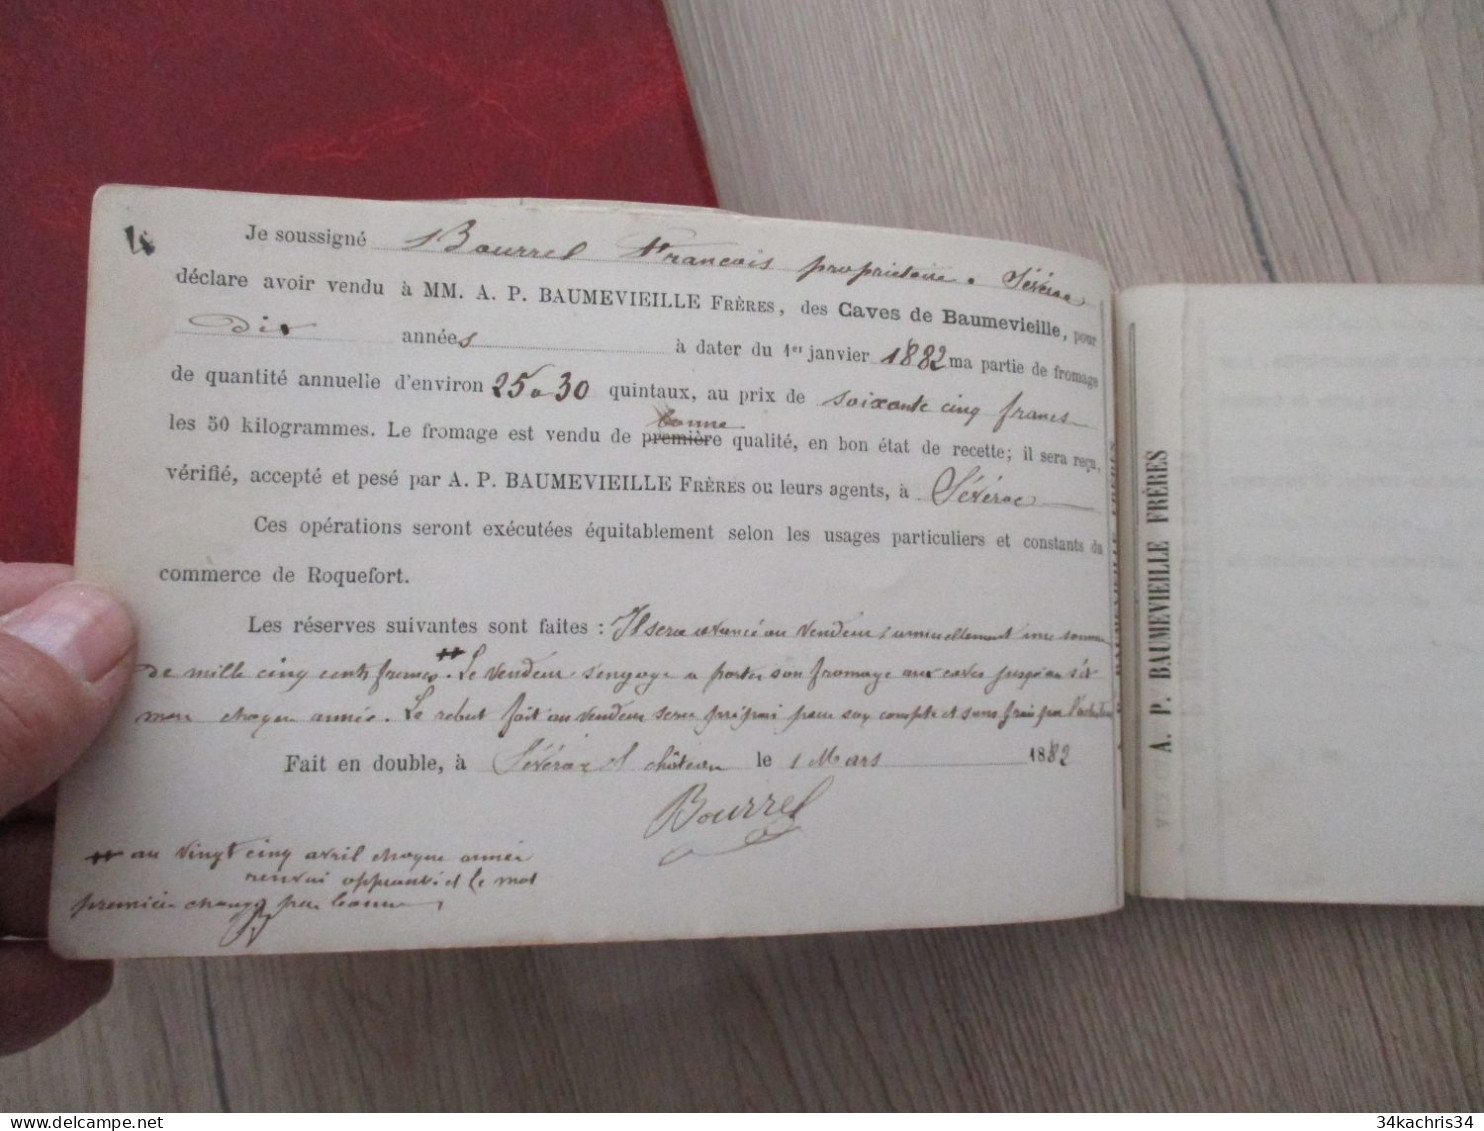 Je soussigné Bourrel Francois propriétaire a Sévérac
déclare avoir vendu à MM. A. P. BAUMEVIEILLE FRÈRES, des Caves de Baumevieille, pour
dix années à dater du 1er janvier 1882 ma partie de fromage
de quantité annuelle d'environ 25 a 30 quintaux, au prix de soixante cinq francs
bonne
les 50 kilogrammes. Le fromage est vendu de première qualité, en bon état de recette; il sera reçu,
vérifié, accepté et pesé par A. P. BAUMEVIEILLE FRÈRES ou leurs agents, à Sévérac
Ces opérations seront exécutées équitablement selon les usages particuliers et constants du
commerce de Roquefort.
Les réserves suivantes sont faites : Il sera avancé au vendeur annuellement une somme
de mille cinq cents francs. Le vendeur s'engage a porter son fromage aux caves jusqu'au six
mars chaque année. Le rebut fait au vendeur sera pour son compte et sans frais par l'acheteur
Fait en double, à Sévérac le château le 1 Mars 1882
Bourrel
au vingt cinq avril chaque année
renvoi approuvé et le mot
premiere changé par bonne
A. P. BAUMEVIEILLE FRÈRES
34kachris34